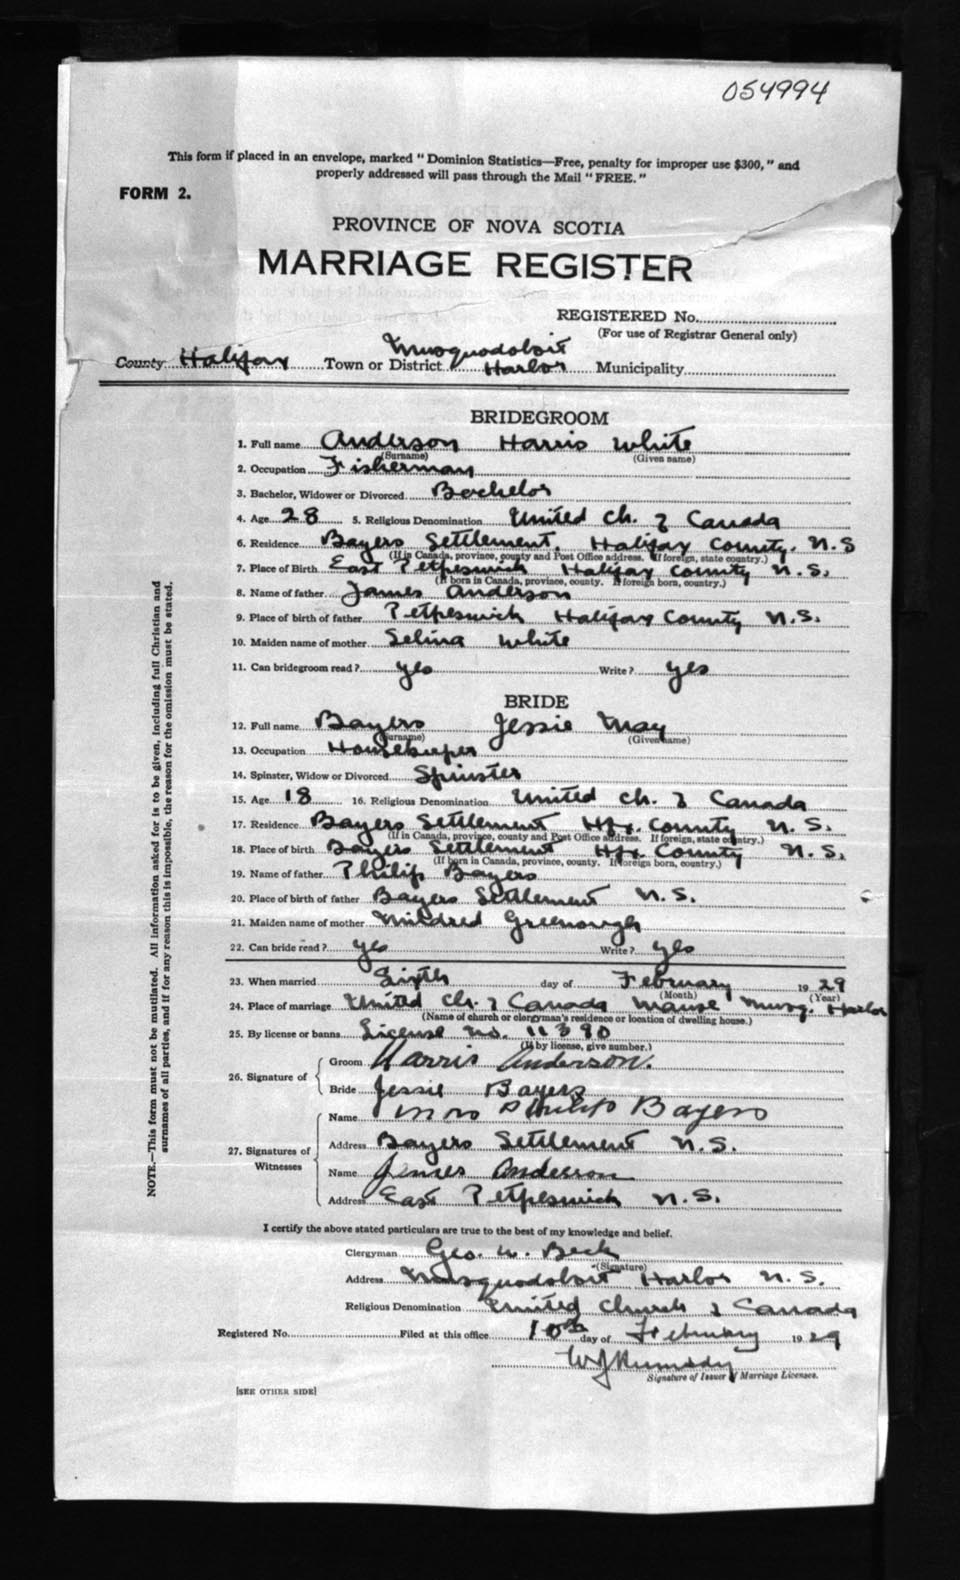 054994
This form if placed in an envelope, marked "Dominion Statistics—Free, penalty for improper use $300," and
properly addressed will pass through the Mail "FREE."
FORM 2.
PROVINCE OF NOVA SCOTIA
MARRIAGE REGISTER
REGISTERED No.
(For use of Registrar General only)
County Halifax Town or District Musquodoboit Harbor Municipality
BRIDEGROOM
1. Full name Anderson Harris White
(Surname) (Given name)
2. Occupation Fisherman
3. Bachelor, Widower or Divorced Bachelor
4. Age 28 5. Religious Denomination United Ch. of Canada
6. Residence Bayers Settlement, Halifax County, N.S
(If in Canada, province, county and Post Office address. If foreign, state country.)
7. Place of Birth East Petpeswick Halifax County N.S.
(If born in Canada, province, county. If foreign born, country.)
8. Name of father James Anderson
9. Place of birth of father Petpeswick Halifax County N.S.
10. Maiden name of mother Selina White
11. Can bridegroom read? yes Write? yes
BRIDE
12. Full name Bayers Jessie May
(Surname) (Given name)
13. Occupation Housekeeper
14. Spinster, Widow or Divorced Spinster
15. Age 18 16. Religious Denomination United Ch. of Canada
17. Residence Bayers Settlement Hfx. County N.S.
(If in Canada, province, county and Post Office address. If foreign, state country.)
18. Place of birth Bayers Settlement Hfx. County N.S.
(If born in Canada, province, county. If foreign born, country.)
19. Name of father Philip Bayers
20. Place of birth of father Bayers Settlement N.S.
21. Maiden name of mother Mildred Greenough
22. Can bride read? yes Write? yes
23. When married Sixth day of February 1929
(Month) (Year)
24. Place of marriage United Ch. of Canada Manse Musq. Harbor
(Name of church or clergyman's residence or location of dwelling house.)
25. By license or banns License no. 11390
(If by license, give number.)
26. Signature of
Groom Harris Anderson.
Bride Jessie Bayers
27. Signatures of Witnesses
Name Mrs Philip Bayers
Address Bayers Settlement N.S.
Name James Anderson
Address East Petpeswick N.S.
I certify the above stated particulars are true to the best of my knowledge and belief.
Clergyman Geo. W. Beck
(Signature)
Address Musquodoboit Harbor N.S.
Religious Denomination United Church of Canada
Registered No. Filed at this office 10th day of February 1929
Signature of Issuer of Marriage Licenses.
[SEE OTHER SIDE]
NOTE.—This form must not be mutilated. All information asked for is to be given, including full Christian and
surnames of all parties, and if for any reason this is impossible, the reason for the omission must be stated.